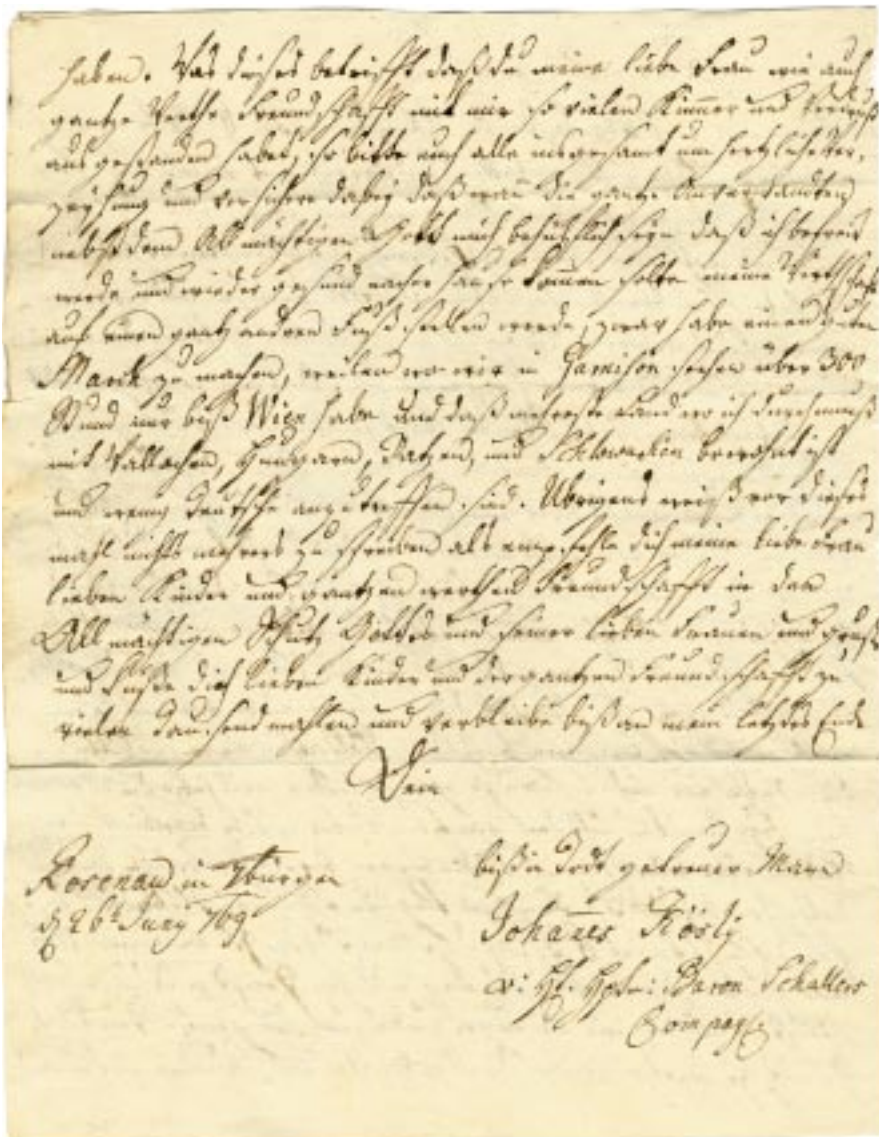 haben. Was dieses betrifft daß du meine liebe Frau wie auch
gantze Werthe Freundschafft mit mir so vielen Kumer und Verdruß
ausgestanden habet, so bitte euch alle insgesamt um hertzliche Ver,
zeyhung und versichere dabey daß wan die gantze Anverwandten
nebst dem Allmächtigen Gott mich behülflich seyn daß ich befreit
werde und wieder gesund nacher hause komen solte meine Wirthschafft
auf einen gantz andren Fuß stellen werde, zwar habe einen
March zu machen, weilen wo wir in Garnison stehen über 300
Stund nur biß Wien habe und daß mehreste Land wo ich durch muß
mit Wallachen, Hungarn, Ratzen, und Schlowacken bewohnt ist
und wenig Deutsche anzutreffen sind. Übrigens weiß vor dieses
mahl nichts mehrers zu schreiben als empfehle dich meine liebe Frau
lieben Kinder und gantzen werthen Freundschafft in den
Allmächtigen Schutz Gottes und seiner lieben Frauen und grüße
und küße dich lieben Kinder und der gantzen Freundschafft zu
vielen Tausend mahlen und verbleibe biß an mein letztes Ende
Dein
biß in Todt getreuer Mann
Rosenau in
d 26t Juny 769
Johañes Rösly
v: Baron Schallers
Compag